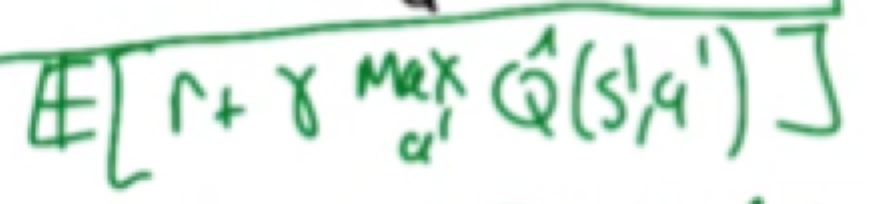 𝔼[r + γ max_{a'} Q̂(s', a')]